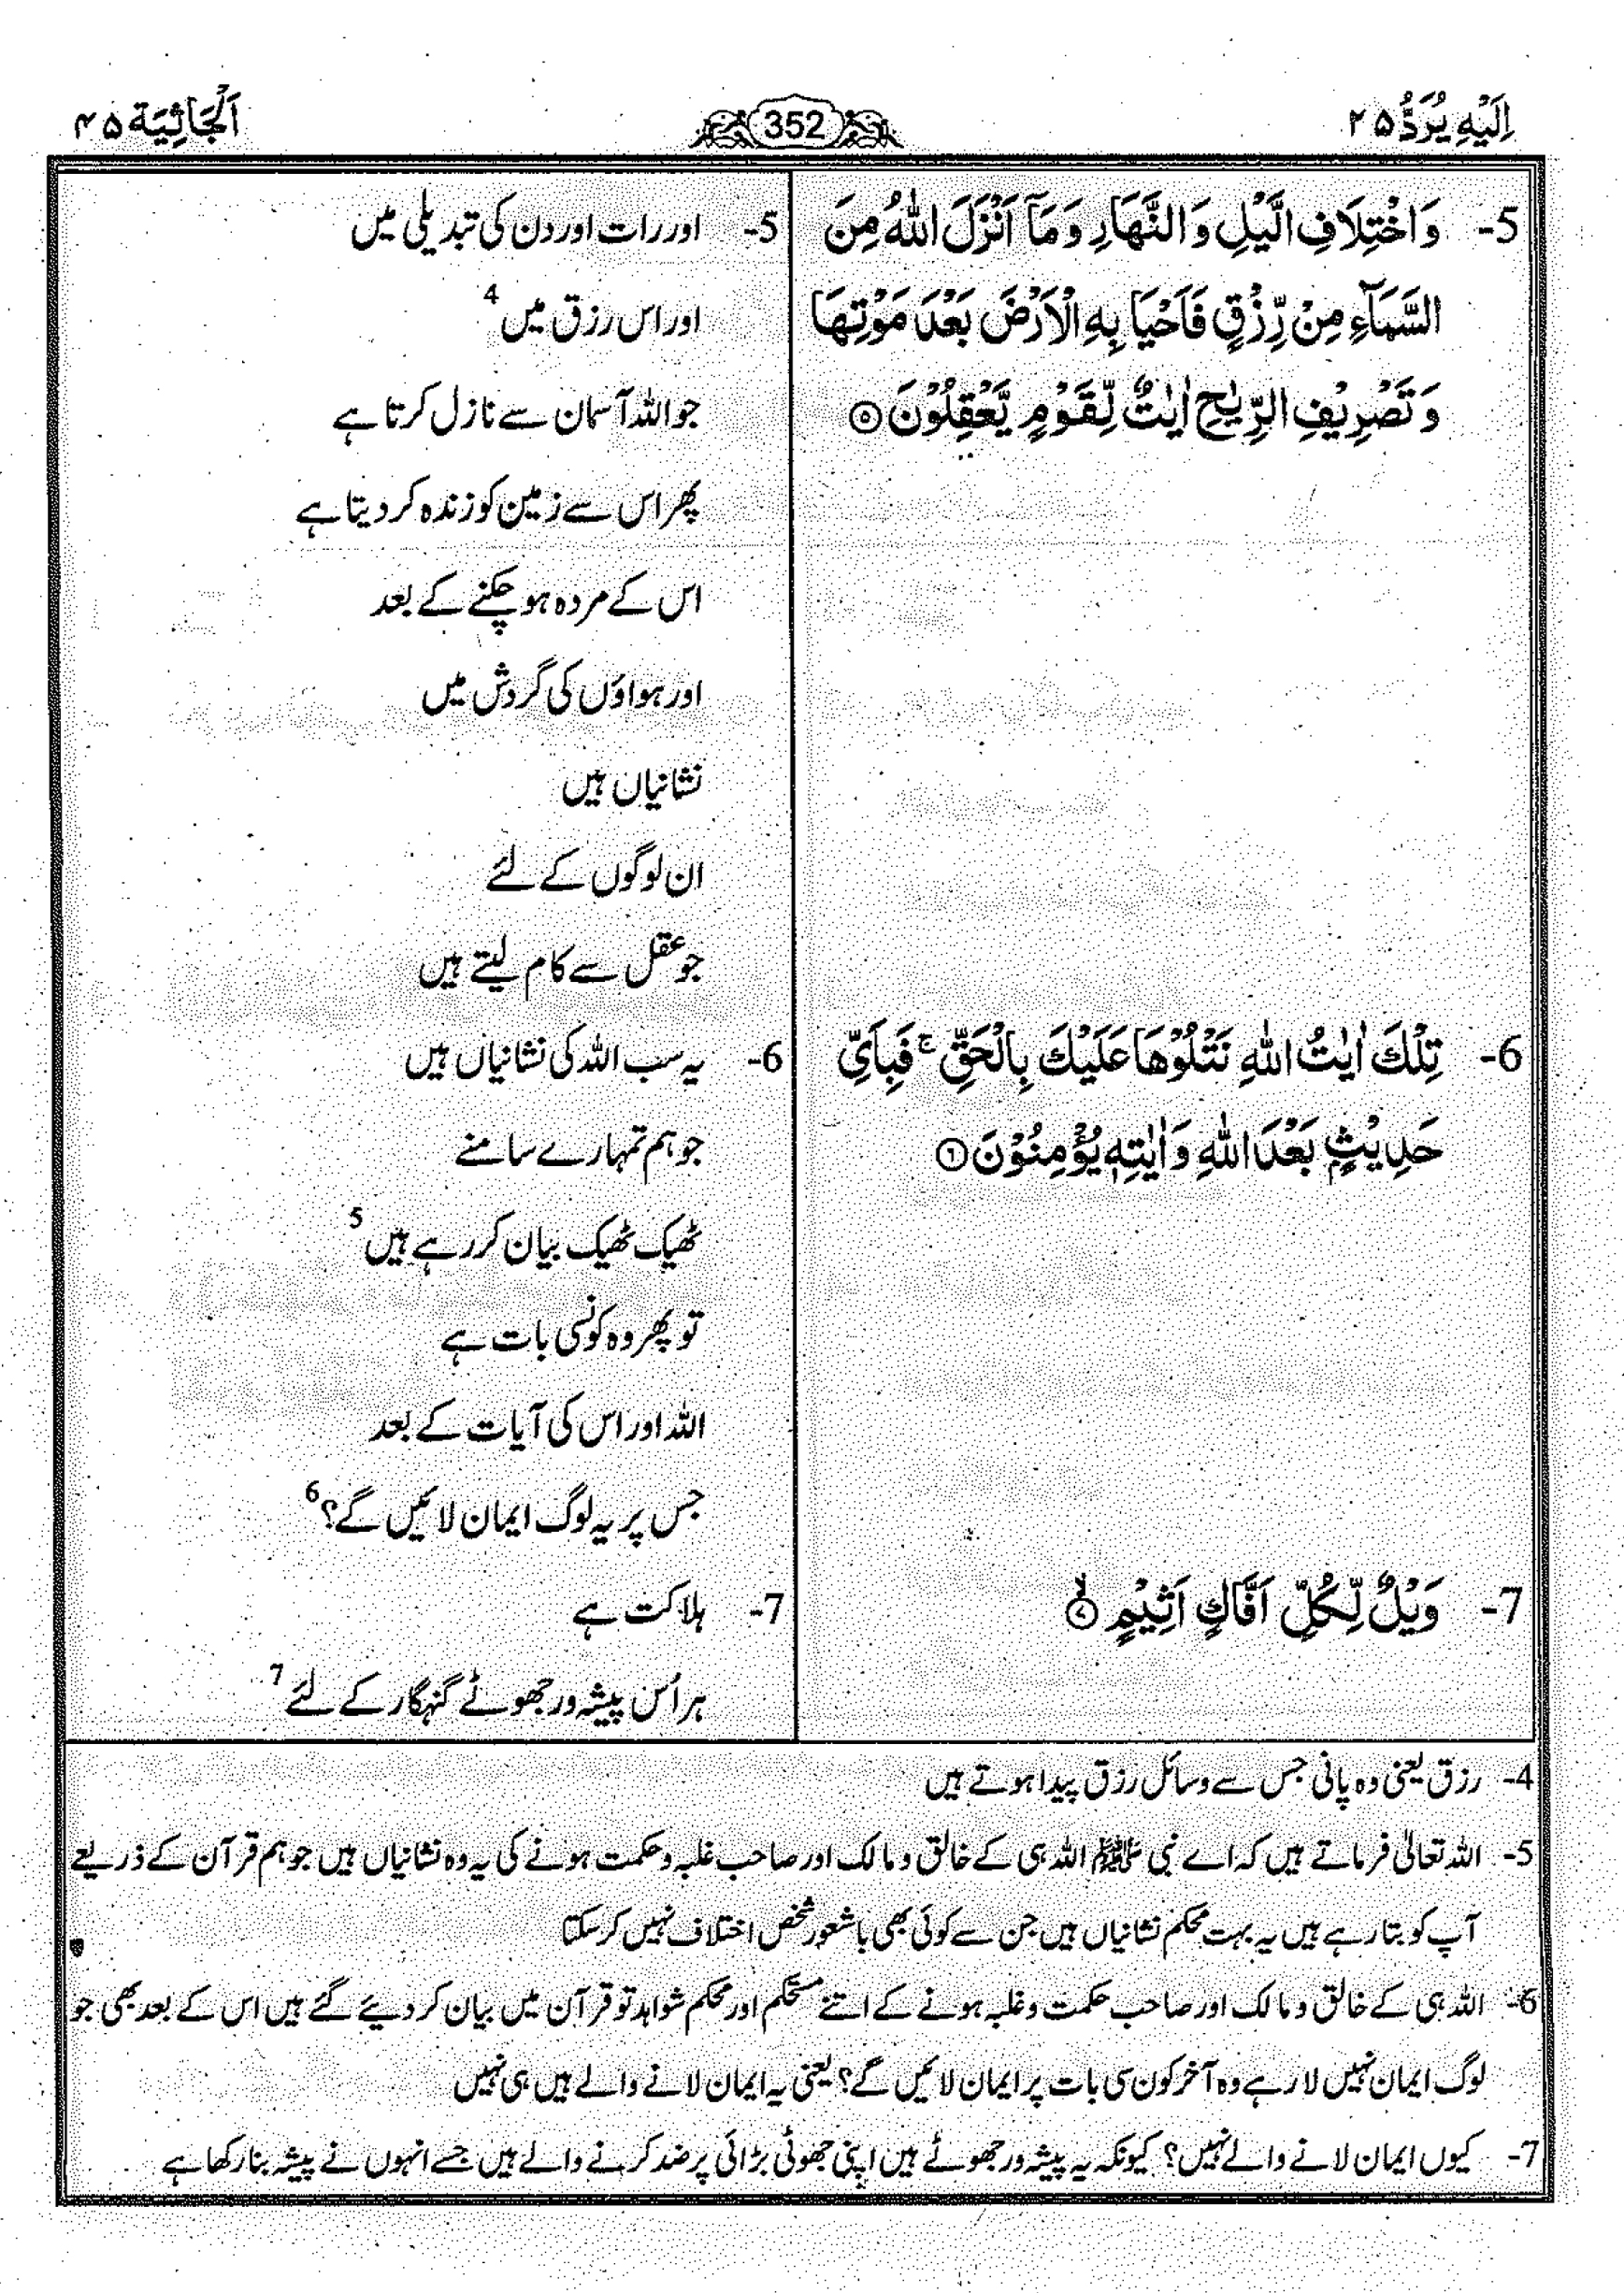 اِلَيْهِ يُرَدُّ ۲۵
352
اَلْجَاثِيَة ۴۵
5- وَاخْتِلَافِ الَّيْلِ وَالنَّهَارِ وَمَآ اَنْزَلَ اللّٰهُ مِنَ
السَّمَآءِ مِنْ رِّزْقٍ فَاَحْيَا بِهِ الْاَرْضَ بَعْدَ مَوْتِهَا
وَتَصْرِيْفِ الرِّيٰحِ اٰيٰتٌ لِّقَوْمٍ يَّعْقِلُوْنَ ۝۵
6- تِلْكَ اٰيٰتُ اللّٰهِ نَتْلُوْهَا عَلَيْكَ بِالْحَقِّ ۚ فَبِاَيِّ
حَدِيْثٍۭ بَعْدَ اللّٰهِ وَاٰيٰتِهٖ يُؤْمِنُوْنَ ۝۶
7- وَيْلٌ لِّكُلِّ اَفَّاكٍ اَثِيْمٍ ۝۷ۙ
5- اور رات اور دن کی تبدیلی میں
اور اس رزق میں 4
جو اللہ آسمان سے نازل کرتا ہے
پھر اس سے زمین کو زندہ کر دیتا ہے
اس کے مردہ ہو چکنے کے بعد
اور ہواؤں کی گردش میں
نشانیاں ہیں
ان لوگوں کے لئے
جو عقل سے کام لیتے ہیں
6- یہ سب اللہ کی نشانیاں ہیں
جو ہم تمہارے سامنے
ٹھیک ٹھیک بیان کر رہے ہیں 5
تو پھر وہ کونسی بات ہے
اللہ اور اس کی آیات کے بعد
جس پر یہ لوگ ایمان لائیں گے؟ 6
7- ہلاکت ہے
ہر اُس پیشہ ور جھوٹے گنہگار کے لئے 7
4- رزق یعنی وہ پانی جس سے وسائل رزق پیدا ہوتے ہیں
5- اللہ تعالیٰ فرماتے ہیں کہ اے نبی ﷺ اللہ ہی کے خالق و مالک اور صاحب غلبہ و حکمت ہونے کی یہ وہ نشانیاں ہیں جو ہم قرآن کے ذریعے
آپ کو بتا رہے ہیں یہ بہت محکم نشانیاں ہیں جن سے کوئی بھی با شعور شخص اختلاف نہیں کر سکتا
6- اللہ ہی کے خالق و مالک اور صاحب حکمت و غلبہ ہونے کے اتنے مستحکم اور محکم شواہد تو قرآن میں بیان کر دیئے گئے ہیں اس کے بعد بھی جو
لوگ ایمان نہیں لا رہے وہ آخر کون سی بات پر ایمان لائیں گے؟ یعنی یہ ایمان لانے والے ہیں ہی نہیں
7- کیوں ایمان لانے والے نہیں؟ کیونکہ یہ پیشہ ور جھوٹے ہیں اپنی جھوٹی بڑائی پر ضد کرنے والے ہیں جسے انہوں نے پیشہ بنا رکھا ہے